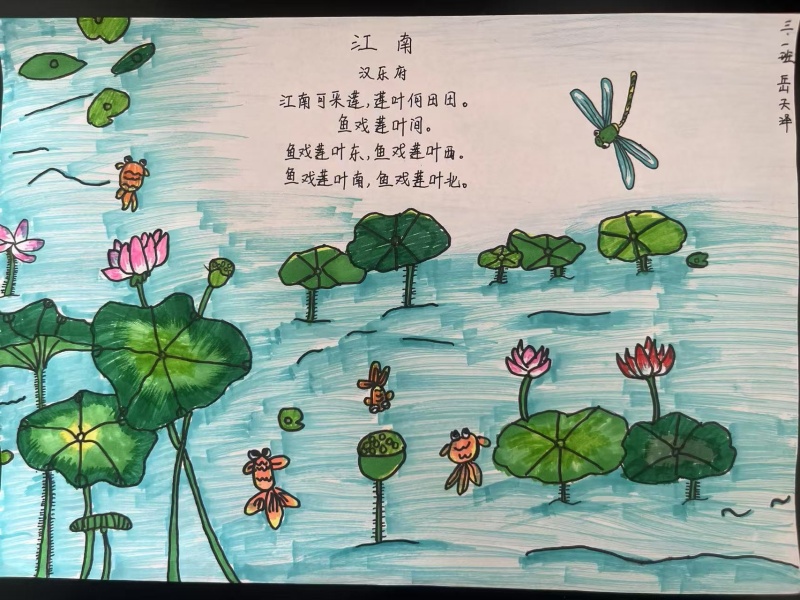 江南
汉乐府
江南可采莲,莲叶何田田。
鱼戏莲叶间。
鱼戏莲叶东,鱼戏莲叶西。
鱼戏莲叶南,鱼戏莲叶北。
三.一班 岳天泽